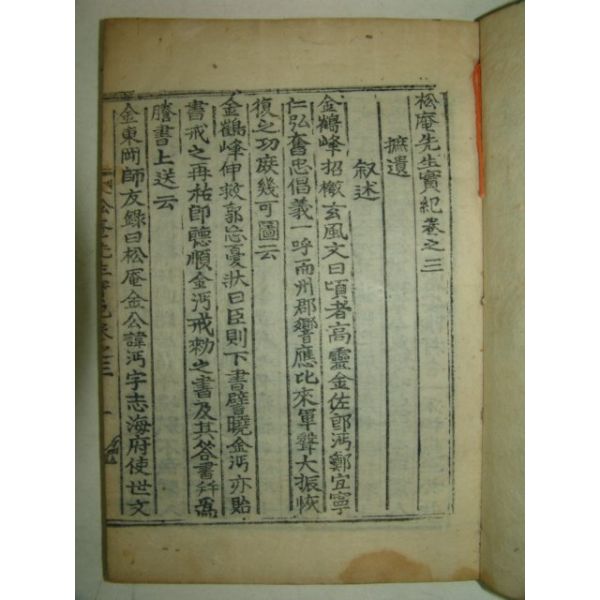 松庵先生實紀卷之三
摭遺
叙述
金鶴峰招檄玄風文曰頃者高靈金佐郎沔鄭宜寧
仁弘奮忠倡義一呼而州郡響應比來軍聲大振恢
復之功庶幾可圖云
金鶴峰伸救郭忘憂狀曰臣則下書譬曉金沔亦貽
書戒之再祐即聽順金沔戒勑之書及其答書幷爲
謄書上送云
金東岡師友錄曰松庵金公諱沔字志海府使世文
松庵先生實紀卷之三 一